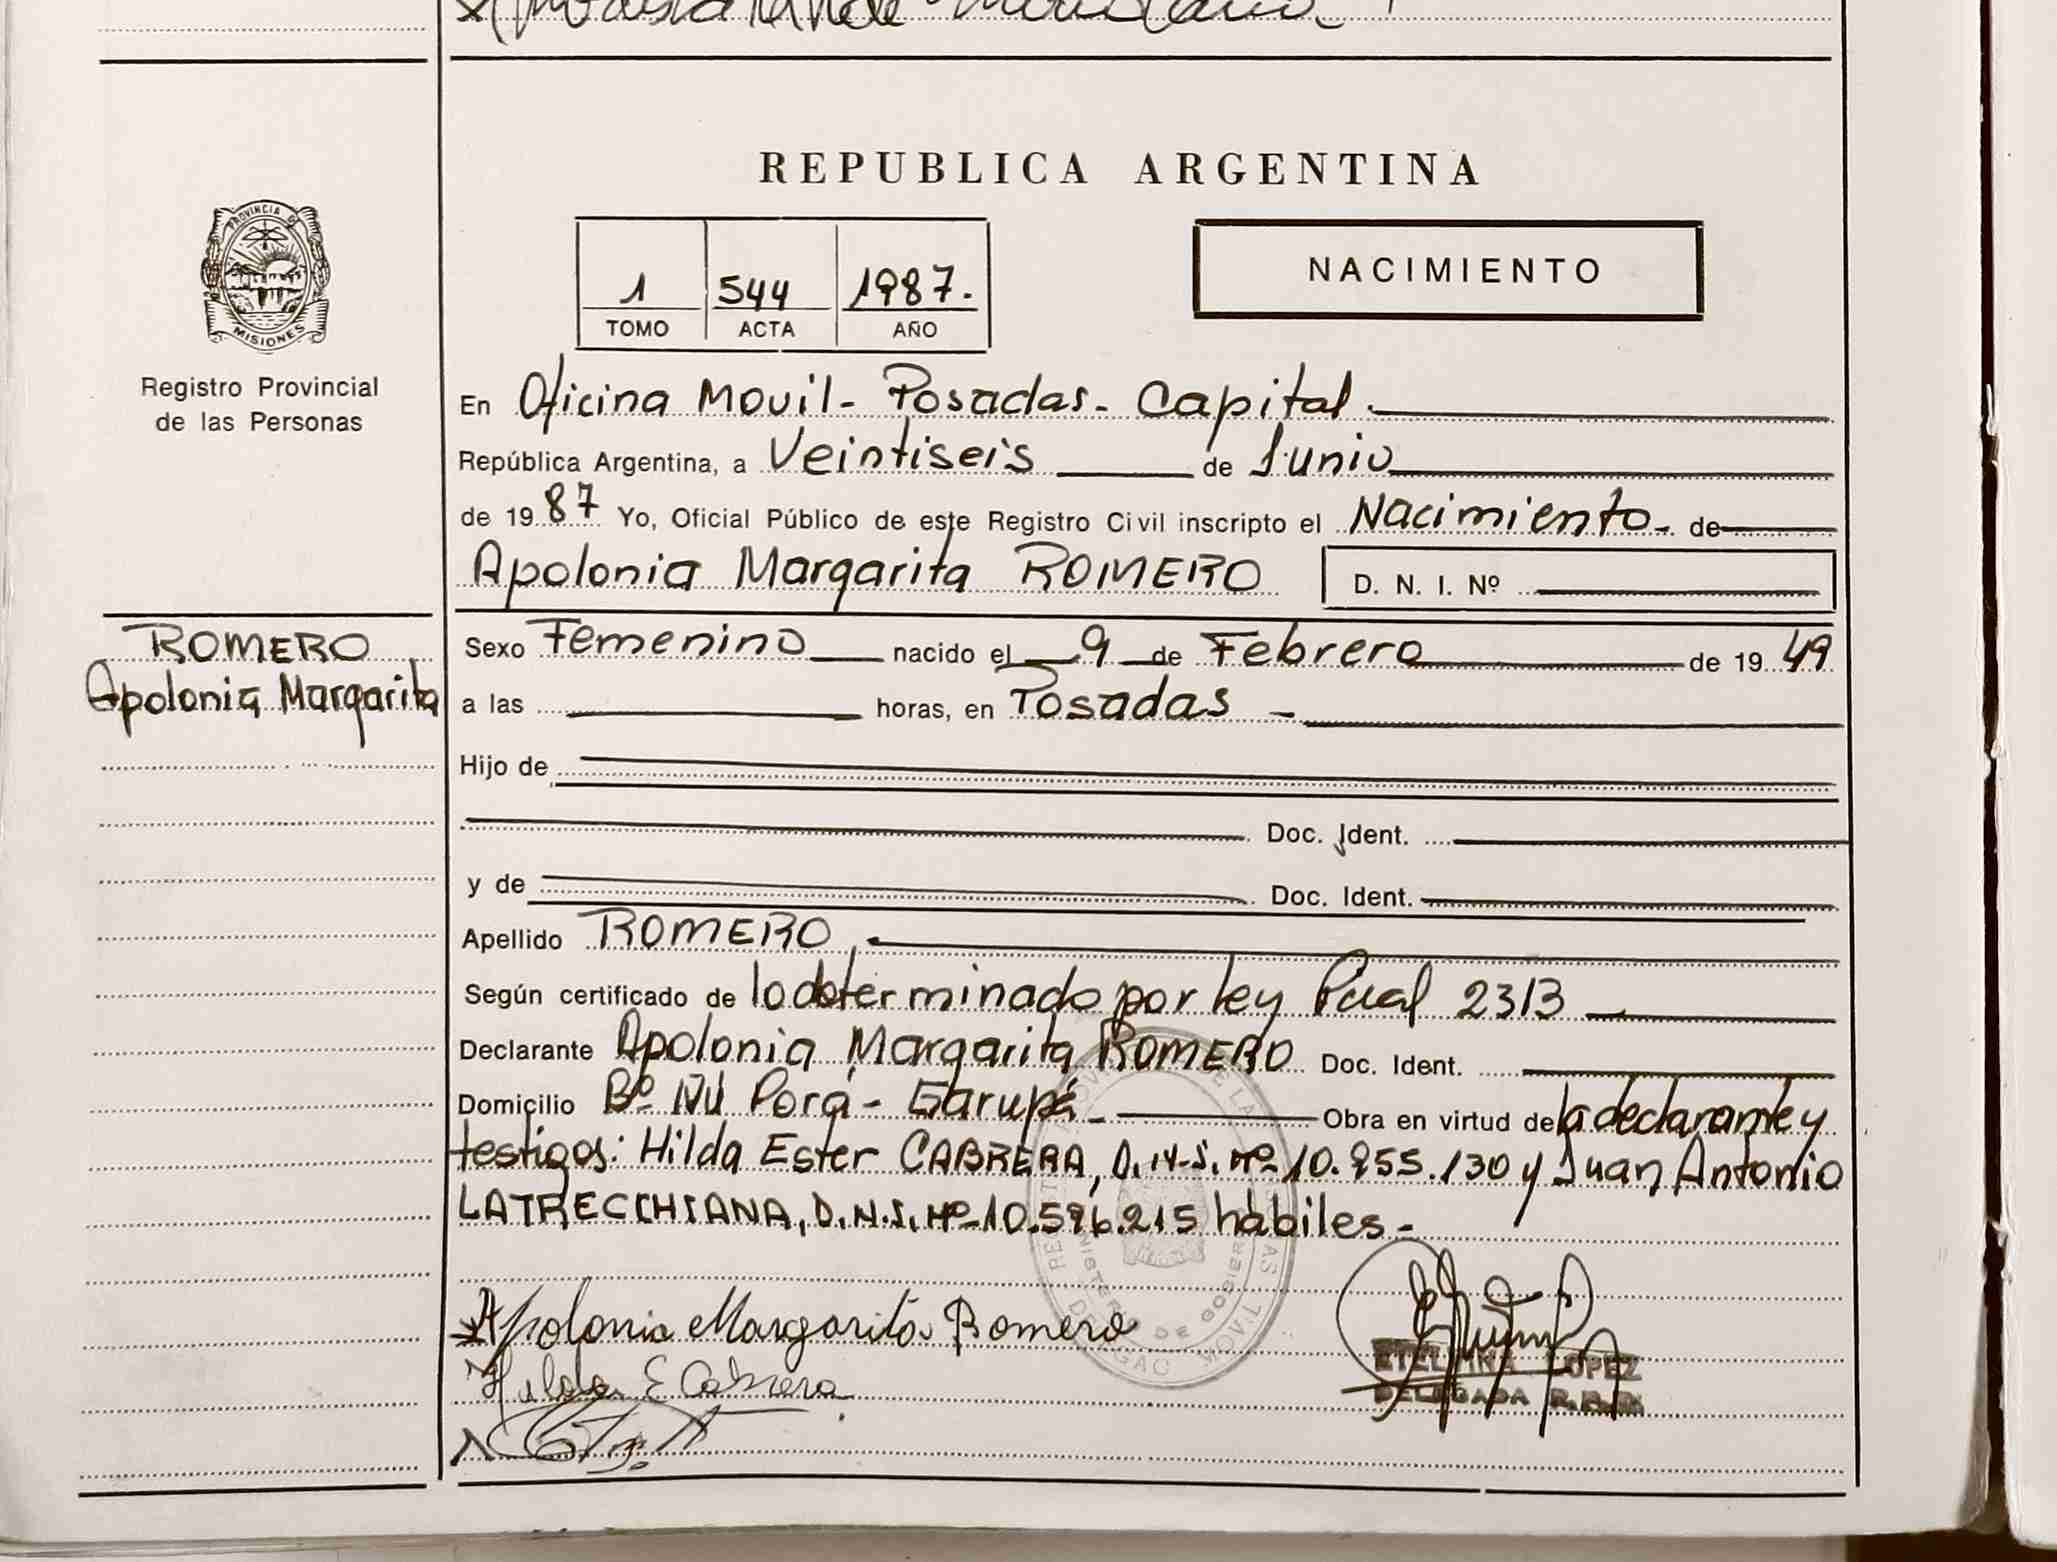 REPUBLICA ARGENTINA
PROVINCIA DE
MISIONES
Registro Provincial
de las Personas
1 544 1987.
TOMO ACTA AÑO
NACIMIENTO
En Oficina Movil - Posadas - Capital.
República Argentina, a Veintiseis de Junio
de 1987 Yo, Oficial Público de este Registro Civil inscripto el Nacimiento de
Apolonia Margarita ROMERO D. N. I. Nº
ROMERO
Apolonia Margarita
Sexo Femenino nacido el 9 de Febrero de 1949
a las horas, en Posadas -
Hijo de
Doc. Ident.
y de Doc. Ident.
Apellido ROMERO.
Según certificado de lo determinado por ley Pcial 2313
Declarante Apolonia Margarita ROMERO Doc. Ident.
Domicilio Bº Ñú Porá - Garupá - Obra en virtud de la declarante y
testigos: Hilda Ester CABRERA, D.N.I. Nº 10.955.130 y Juan Antonio
LATRECCHIANA, D.N.I. Nº 10.596.215 hábiles -
Apolonia Margarita Romero
Hilda E Cabrera
ETELVINA LOPEZ
DELEGADA R.P.P.